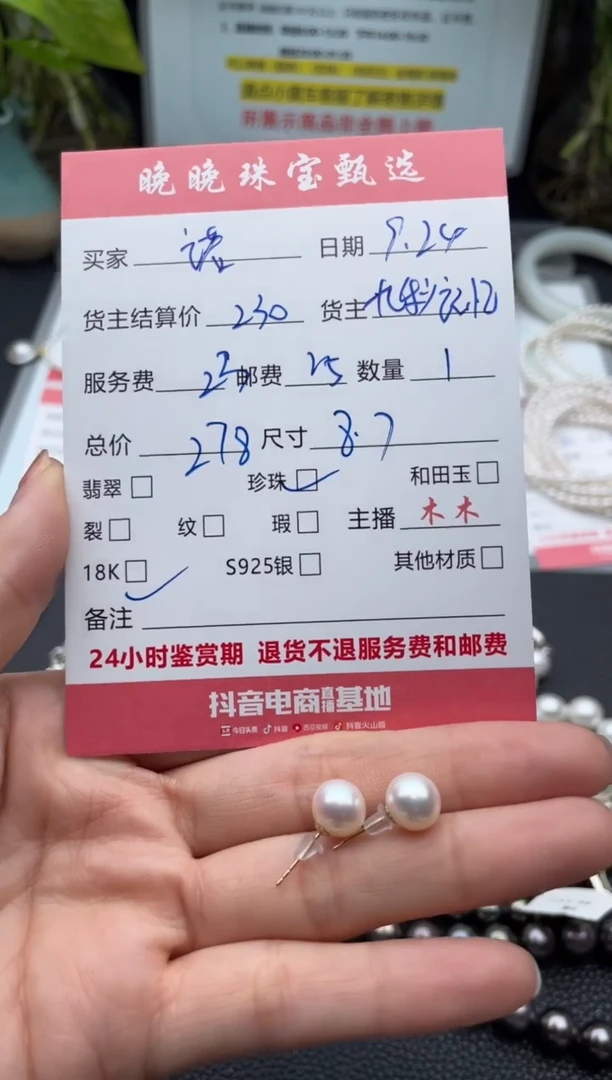 晚晚珠宝甄选
买家 日期 9.24
货主结算价 230 货主
服务费 23 邮费 25 数量 1
总价 278 尺寸 8.7
翡翠 珍珠 和田玉
裂 纹 瑕 主播 木木
18K S925银 其他材质
备注
24小时鉴赏期 退货不退服务费和邮费
抖音电商直播基地
今日头条 抖音 西瓜视频 抖音火山版